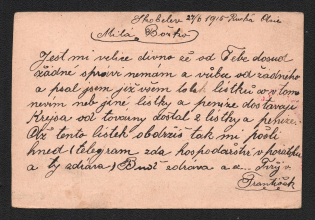 Skobelev 27/6 1915 Ruská
Milá Božko
Jest mi velice divno že od Tebe dosud
žádné zprávi nemam a vůbec od žadneho
a psal jsem již všem lístků a v tom
nevim neb jiné lístky a peníze dostavají
Krejsa od tovarny dostal 2 lístky a peníze.
Až tento lístek obdržíš tak mi pošli
hned 1 telegram zda hospodařství v pořadku
a ty zdráva) Buď zdráva a Tvůj
František